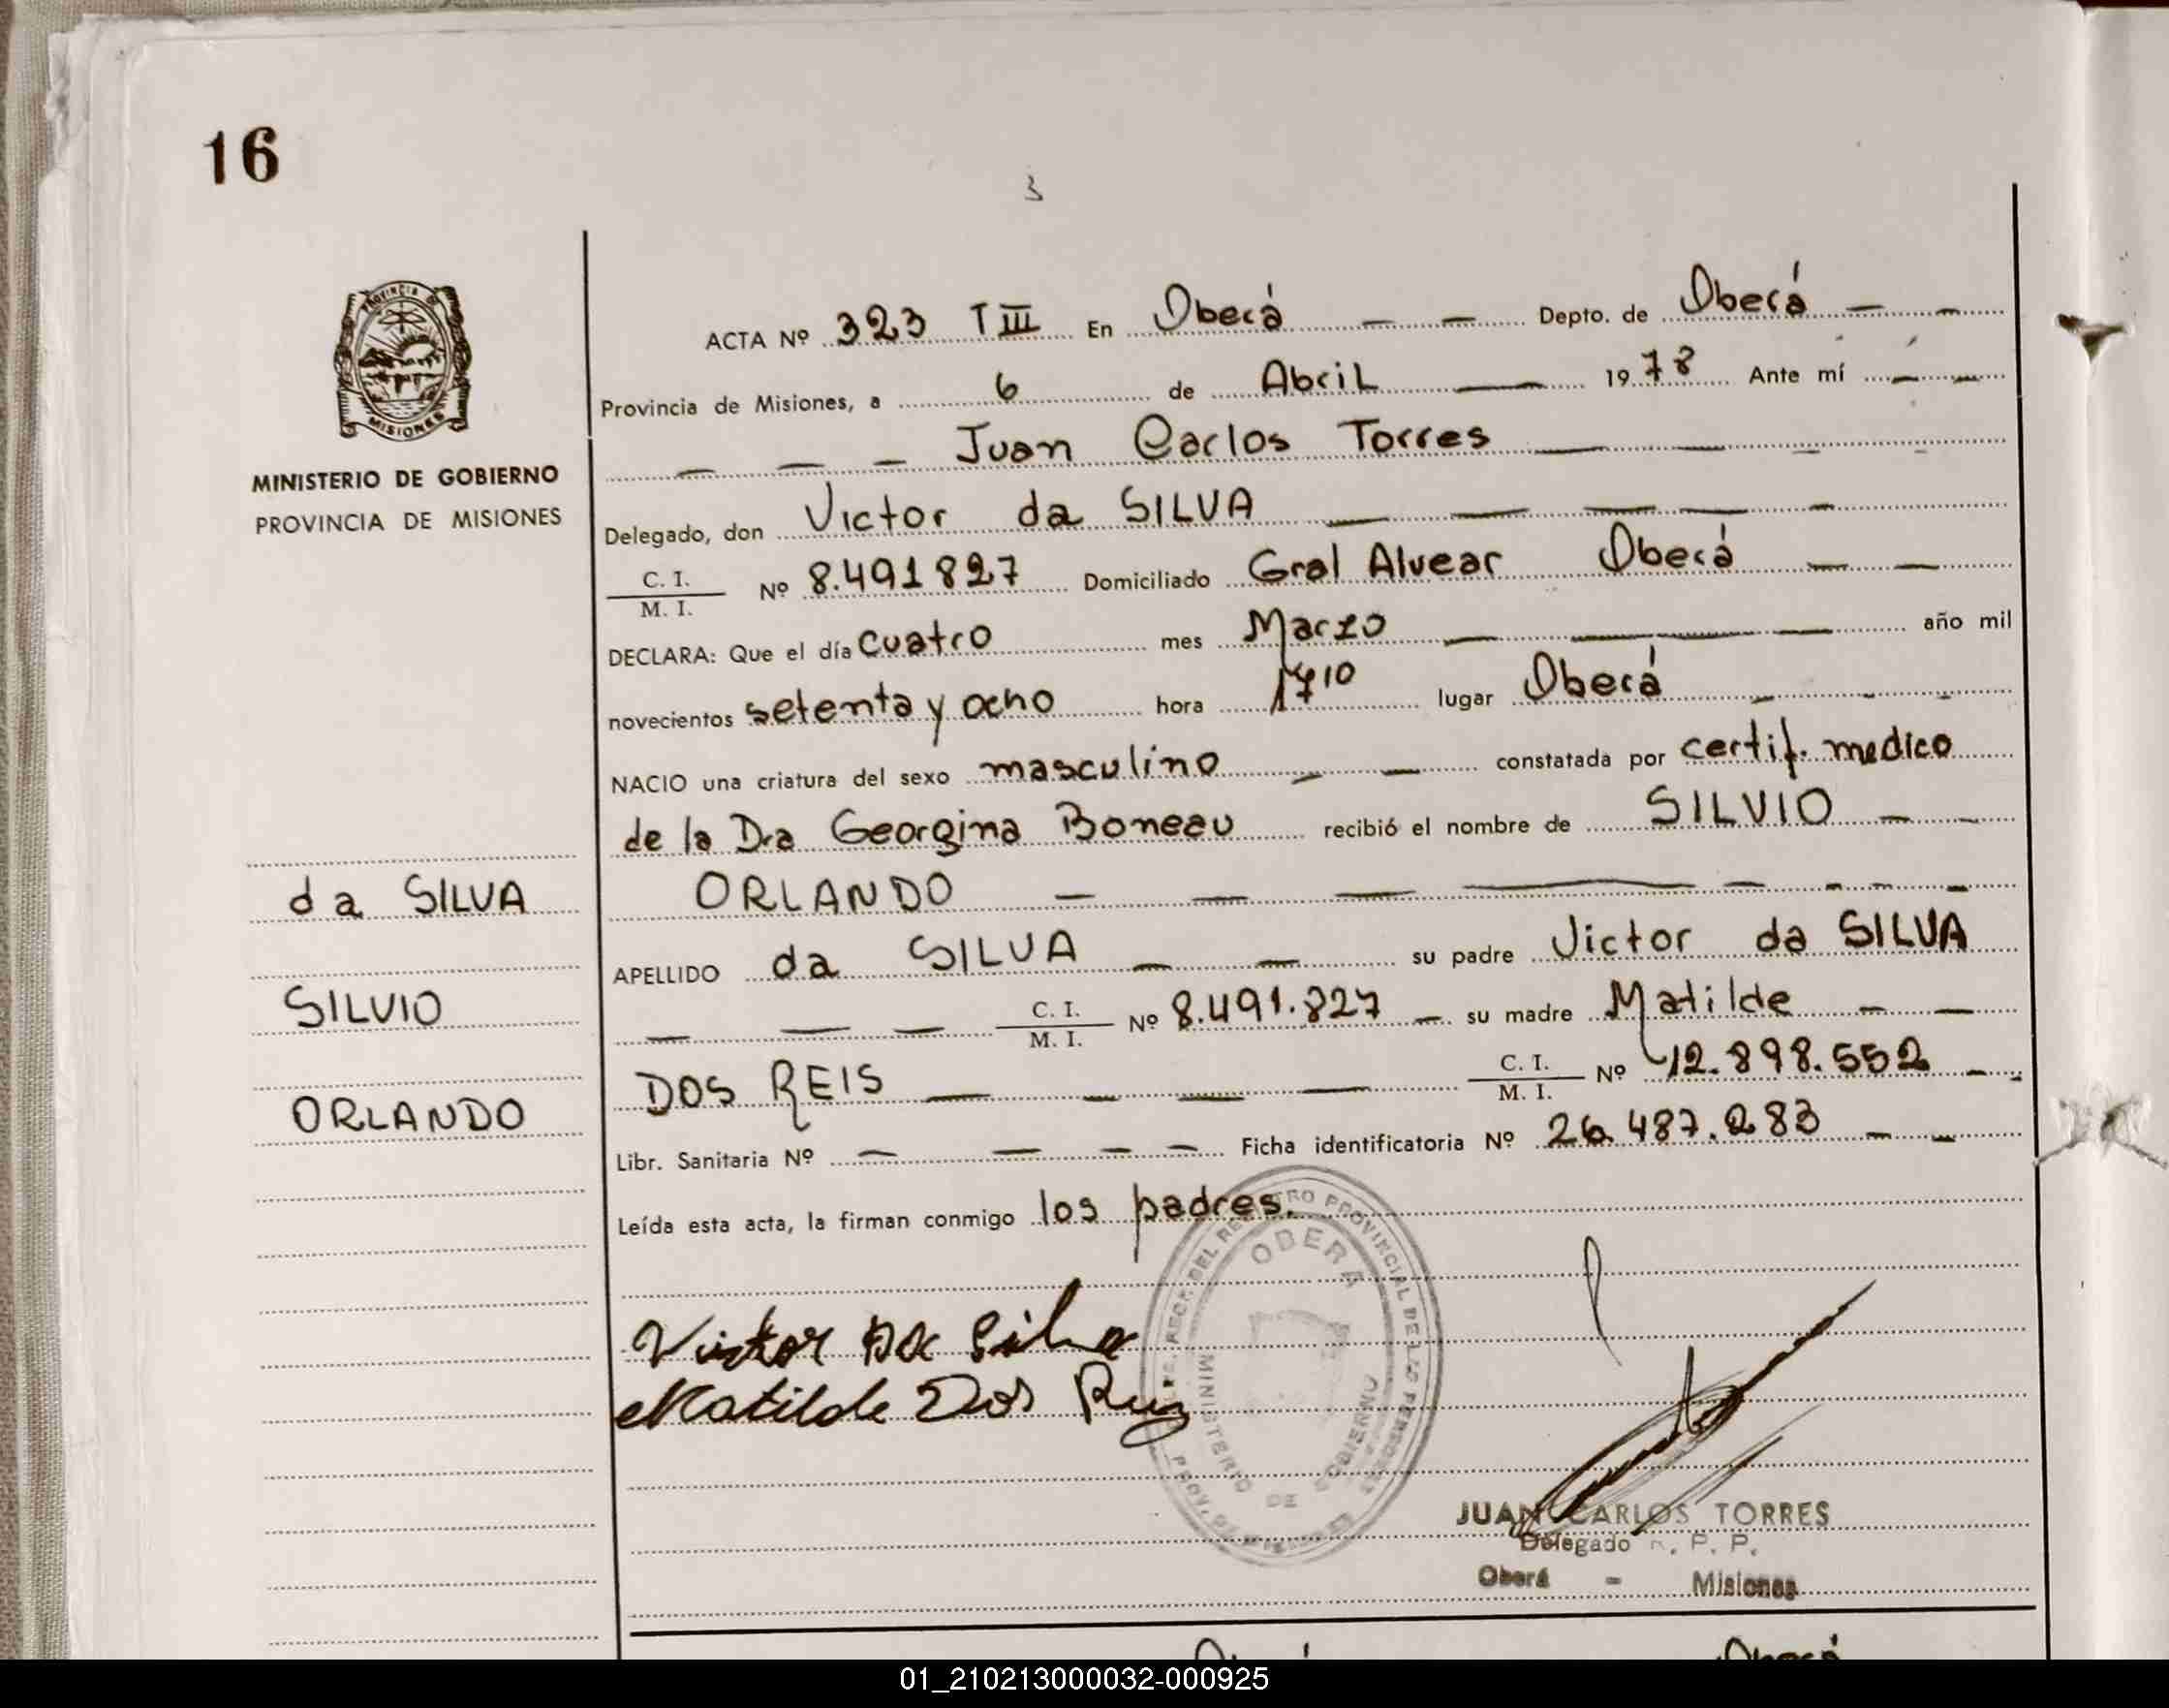 16
3
PROVINCIA DE
MISIONES
MINISTERIO DE GOBIERNO
PROVINCIA DE MISIONES
da SILVA
SILVIO
ORLANDO
ACTA Nº 323 T III En Oberá — — Depto. de Oberá — —
Provincia de Misiones, a 6 de Abril — 1978 Ante mí — —
— — — Juan Carlos Torres — — — —
Delegado, don Victor da SILVA — — — — —
C. I. / M. I. Nº 8.491827 Domiciliado Gral Alvear Oberá — —
DECLARA: Que el día cuatro mes Marzo — — — año mil
novecientos setenta y ocho hora 17 10 lugar Oberá — — —
NACIO una criatura del sexo masculino — — constatada por certif. medico
de la Dra Georgina Boneau recibió el nombre de SILVIO — —
ORLANDO — — — — — — — —
APELLIDO da SILVA — — su padre Victor da SILVA
— — — C. I. / M. I. Nº 8.491.827 — su madre Matilde — —
DOS REIS — — — — C. I. / M. I. Nº 12.898.552 — —
Libr. Sanitaria Nº — — — — Ficha identificatoria Nº 26.487.283 — —
Leída esta acta, la firman conmigo los padres.
OBERA
MINISTERIO DE GOBIERNO
Victor Da Silva
Matilde Dos Reis
JUAN CARLOS TORRES
Delegado R. P. P.
Oberá - Misiones
01_210213000032-000925